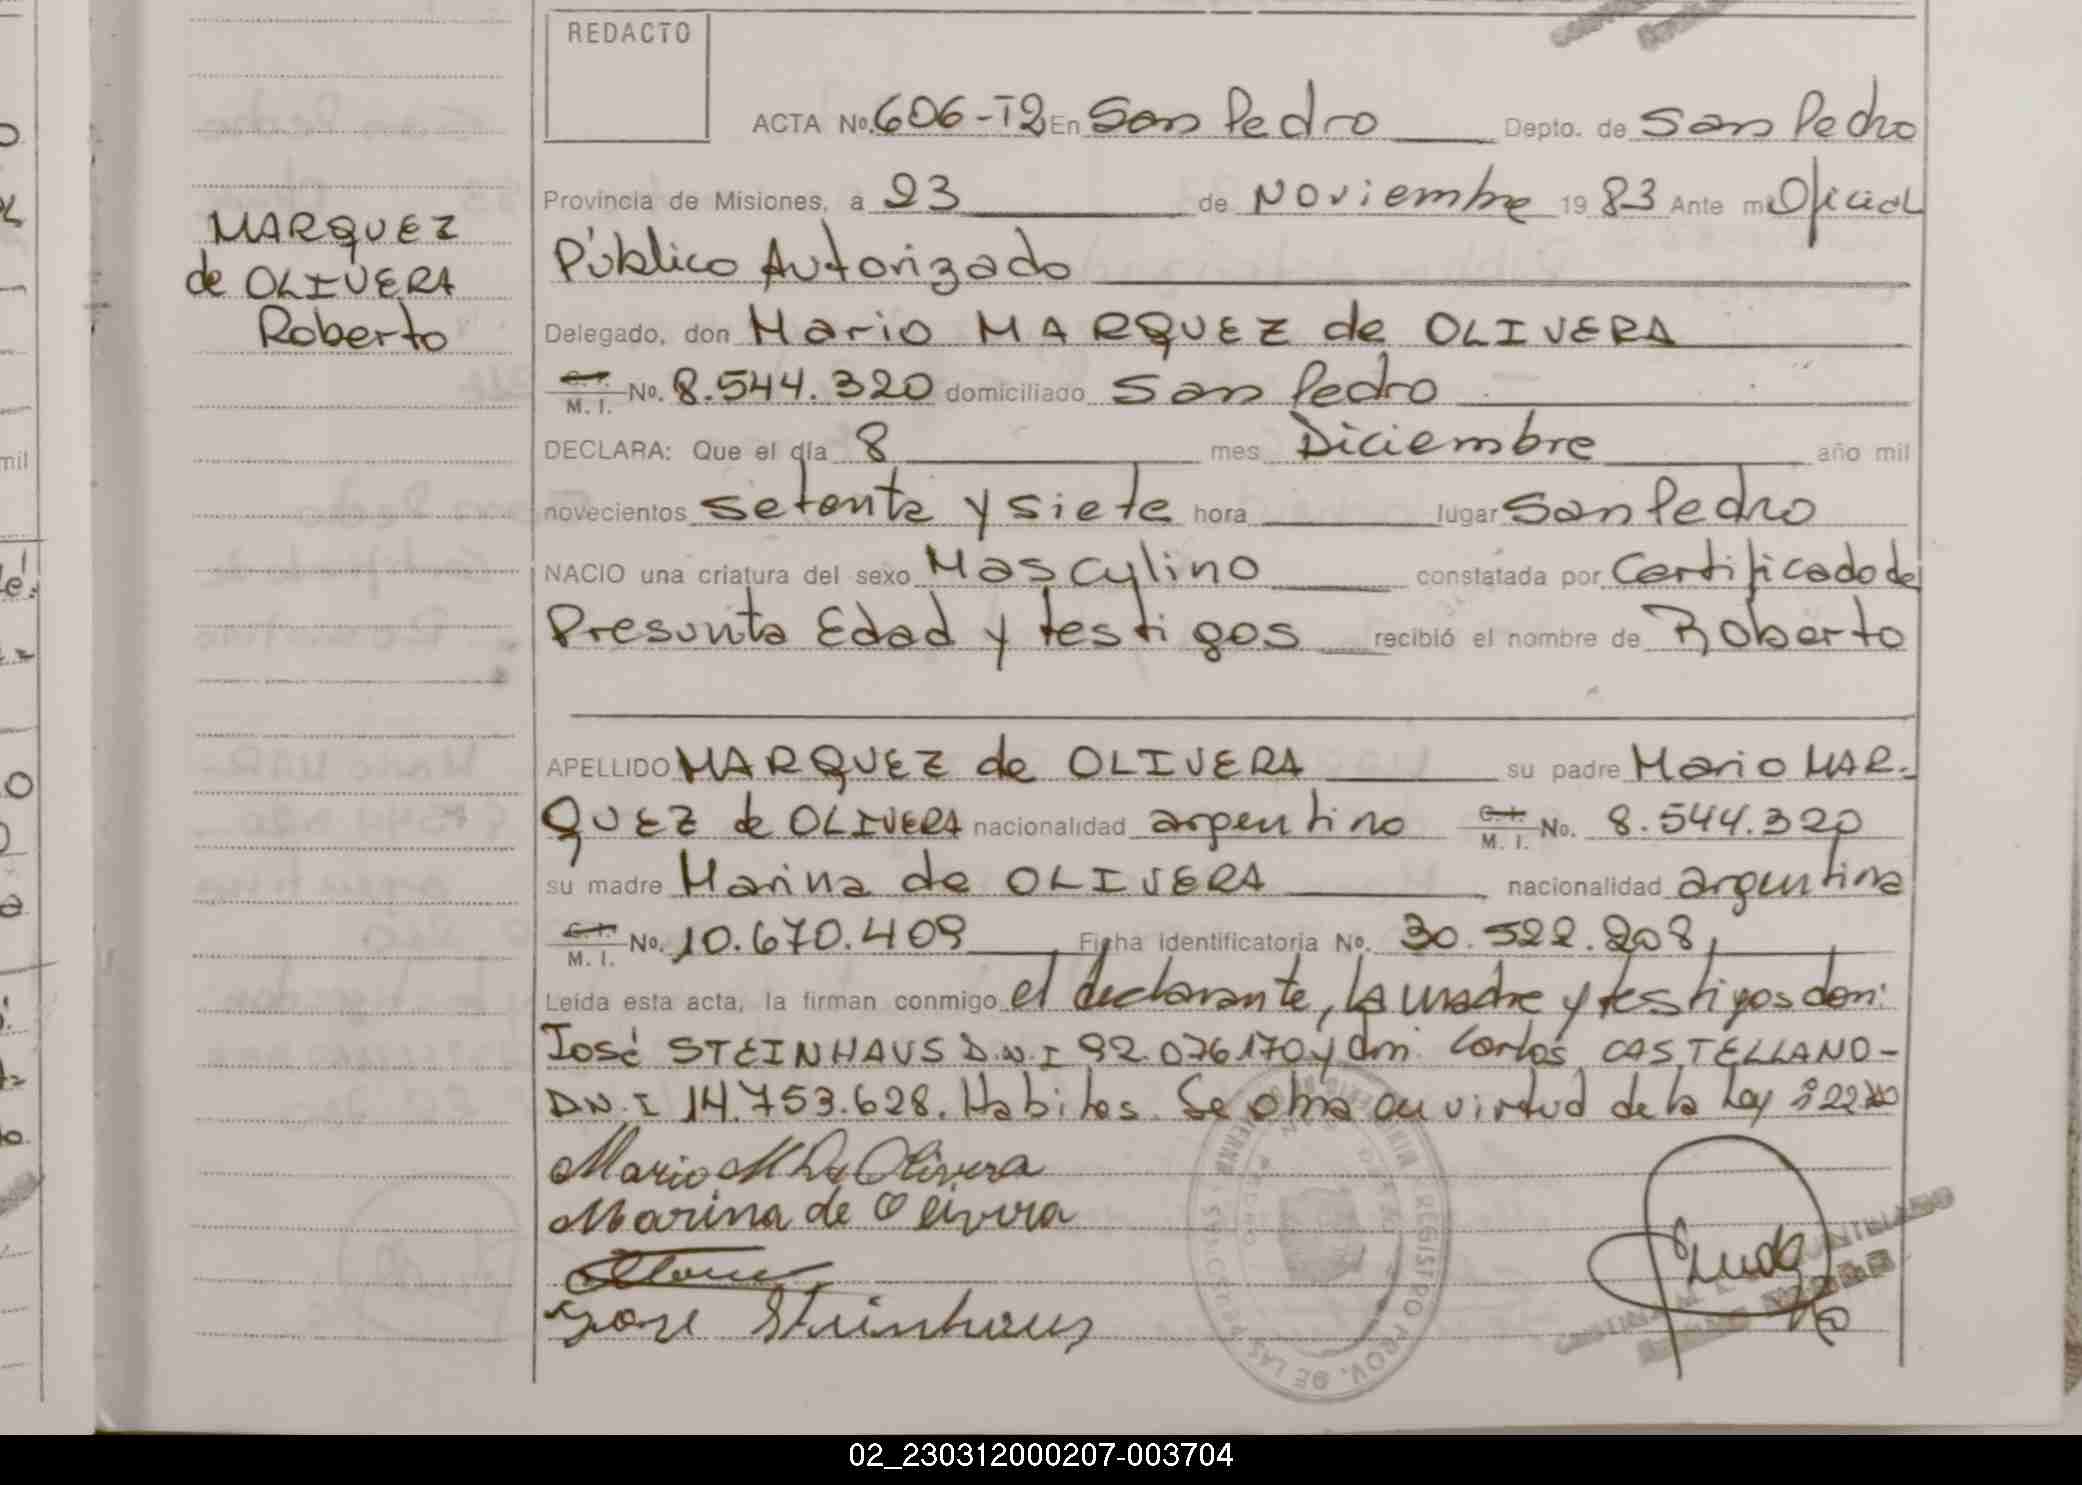 REDACTO
ACTA No. 606-T2 En San Pedro Depto. de San Pedro
MARQUEZ
de OLIVERA
Roberto
Provincia de Misiones, a 23 de Noviembre 1983 Ante mi Oficial
Público Autorizado
Delegado, don Mario MARQUEZ de OLIVERA
C.I. M. I. No. 8.544.320 domiciliado San Pedro
DECLARA: Que el día 8 mes Diciembre año mil
novecientos setenta y siete hora lugar San Pedro
NACIO una criatura del sexo Masculino constatada por Certificado de
Presunta Edad y testigos recibió el nombre de Roberto
APELLIDO MARQUEZ de OLIVERA su padre Mario MAR-
QUEZ de OLIVERA nacionalidad argentino C.I. M. I. No. 8.544.320
su madre Marina de OLIVERA nacionalidad argentina
C.I. M. I. No. 10.670.409 Ficha identificatoria No. 30.522.208
Leída esta acta, la firman conmigo el declarante, la madre y testigos don:
José STEINHAUS D.N.I 92.076.170 y don: Carlos CASTELLANO-
DN.I 14.753.628. Habiles. Se obra en virtud de la Ley
Mario M De Olivera
Marina de Olivera
Jose Steinhaus
REGISTRO PROV. DE LAS PERSONAS
02_230312000207-003704